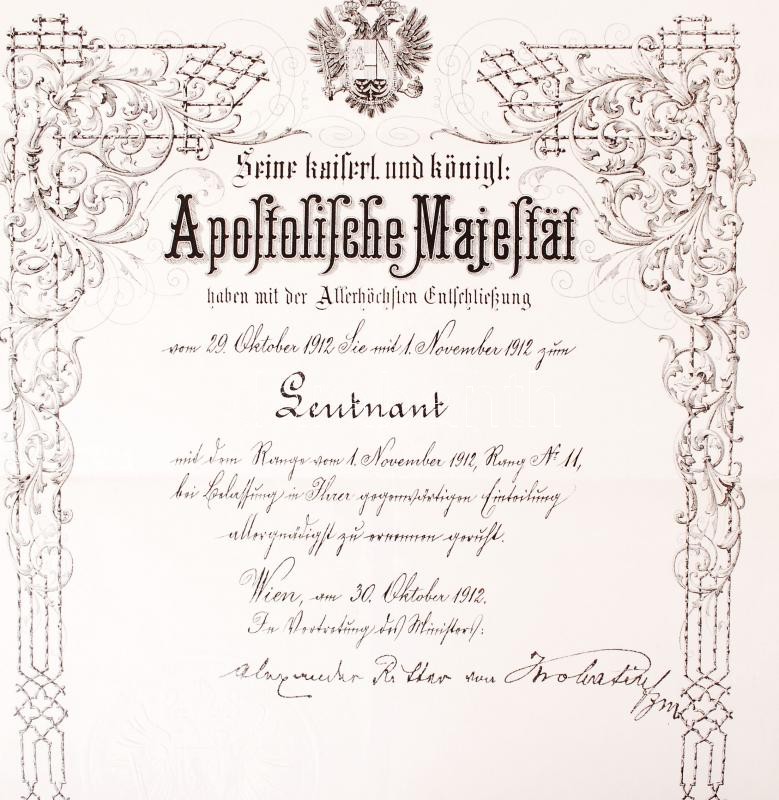 Seine kaiserl. und königl:
Apostolische Majestät
haben mit der Allerhöchsten Entschließung
vom 29. Oktober 1912 Sie mit 1. November 1912 zum
Leutnant
mit dem Range vom 1. November 1912, Rang Nº 11,
bei Belassung in Ihrer gegenwärtigen Einteilung
allergnädigst zu ernennen geruht.
Wien, am 30. Oktober 1912.
In Vertretung des Ministers:
Alexander Ritter von Krobatin